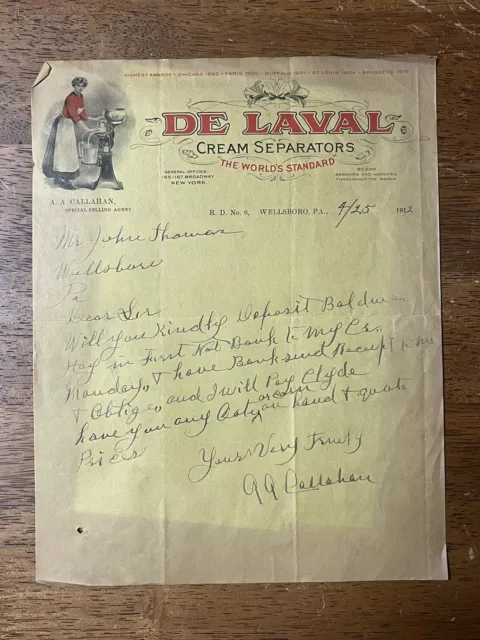 HIGHEST AWARDS - CHICAGO 1893 - PARIS 1900 - BUFFALO 1901 - ST. LOUIS 1904 - BRUSSELS 1910
DE LAVAL
CREAM SEPARATORS
"THE WORLD'S STANDARD"
GENERAL OFFICES:
165-167 BROADWAY
NEW YORK.
BRANCHES AND AGENCIES
THROUGHOUT THE WORLD
A. A. CALLAHAN,
SPECIAL SELLING AGENT
R. D. No. 6, WELLSBORO, PA., 4/25 1912
Mr John Thomas
Wellsboro
Pa
Dear Sir
Will you Kindly Deposit
Hay in First Nat Bank to My Cr.
Monday, & have Bank send Receipt to Me
& Oblige, and I will Pay Clyde
have you any Oats or corn on hand & quote
Prices
Yours Very Truly
A A Callahan